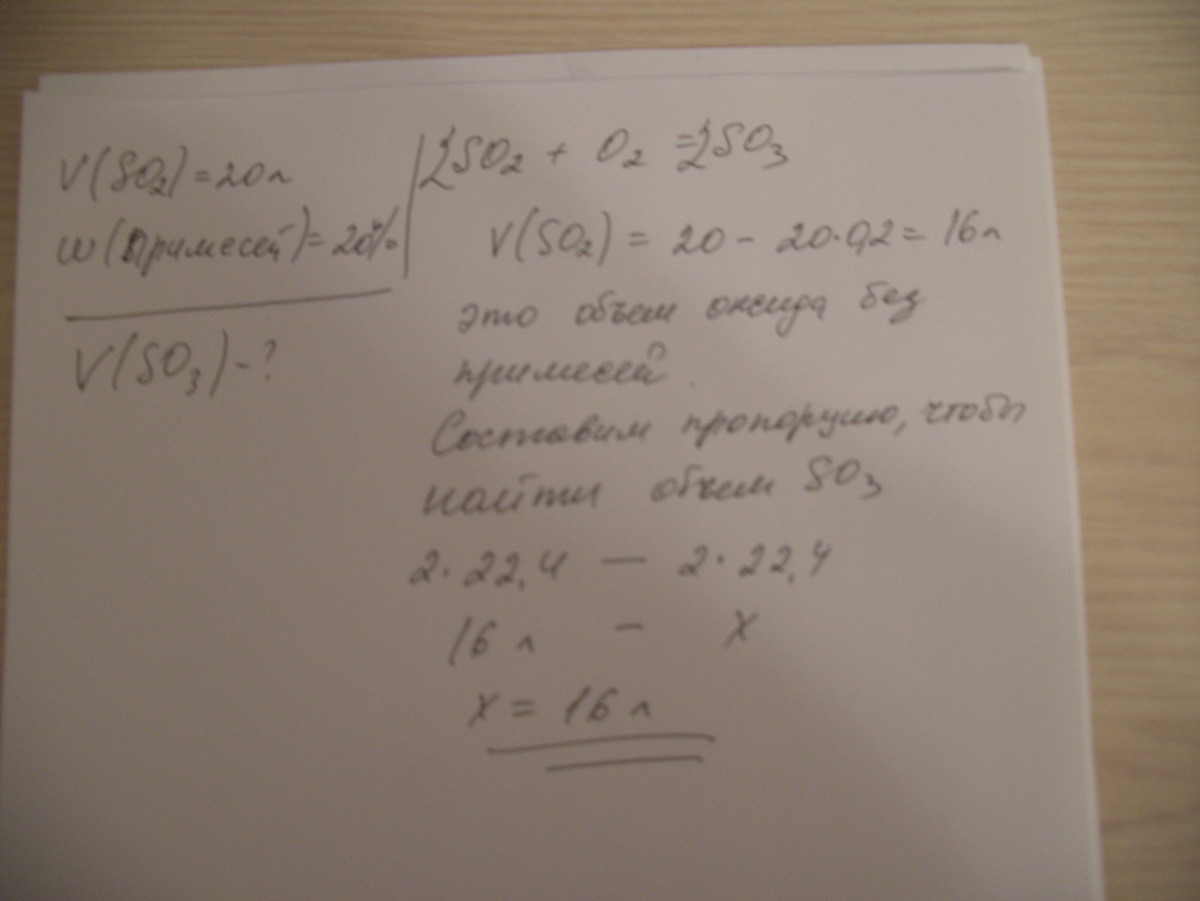 V(SO₂)=20л
w(примесей)=20%
V(SO₃)-?
2SO₂ + O₂ =2SO₃
V(SO₂) = 20 - 20·0,2 = 16л
это объем оксида без
примесей.
Составим пропорцию, чтобы
найти объем SO₃
2·22,4 — 2·22,4
16 л - X
X = 16 л